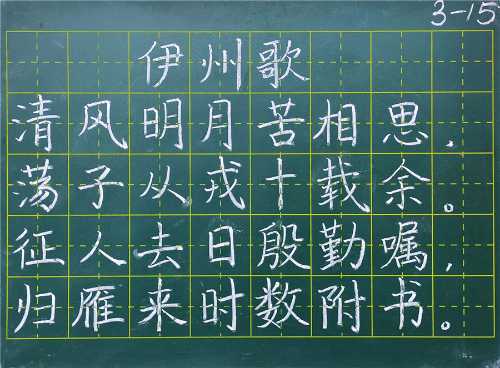 3-15
伊州歌
清风明月苦相思，
荡子从戎十载余。
征人去日殷勤嘱，
归雁来时数附书。